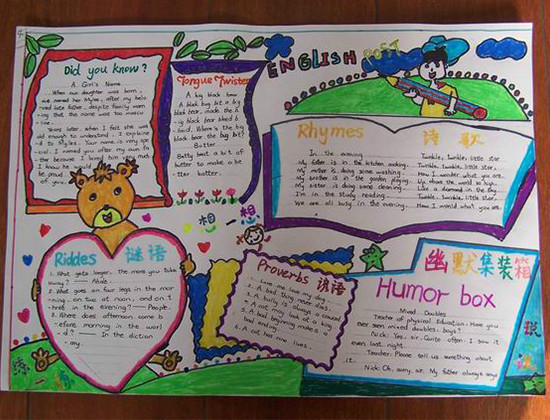 ENGLISH POST
Did you know?
A Girl's Name
When our daughter was born,
we named her Myles, after my belo
ved late father, despite family warn
ing that the name was too mascu
line.
Years later, when I felt she was
old enough to understand, I explaine
d to Myles. Your name is very spe
cial. I named you after my own fa
ther because I loved him very much.
I know he would have
be proud
of you.
Tongue Twister
A big black bear
A black bug bit a big
black bear, made the b
ig black bear bleed b
lood. Where's the big
black bear the big bit?
Butter
Betty beat a bit of
butter to make a be
tter butter.
Rhymes 诗歌
In the evening
My father is in the kitchen cooking.
My mother is doing some washing.
My brother is in the garden
My sister is doing some cleaning.
I'm in the study reading
We are all busy in the evening.
Twinkle, twinkle, little star
Twinkle, twinkle, little star,
How I wonder what you are.
Up above the world so high,
Like a diamond in the sky.
Twinkle, twinkle, little star,
How I wonder what you are.
想一想
Riddes 谜语
1. What gets longer, the more you take
away? —— Hole.
2. What goes on four legs in the mor
ning, on two at noon, and on t
hree in the evening? — People.
3. Where does afternoon come b
efore morning in the worl
d? —— In the diction
ary.
Proverbs 谚语
1. Love me love my dog.
2. A bad thing never dies.
3. A bully is always a coward.
4. A cat may look at a king.
5. A bad beginning make a
bad ending.
6. A cat has nine lives.
幽默集装箱
Humor box
Mixed Doubles
Teacher of physical Education: Have you
ever seen mixed doubles, boys?
Nick: Yes, sir. Quite often. I saw it
even last night.
Teacher: Please tell us something about
it.
Nick: Oh, sorry, sir. My father always says